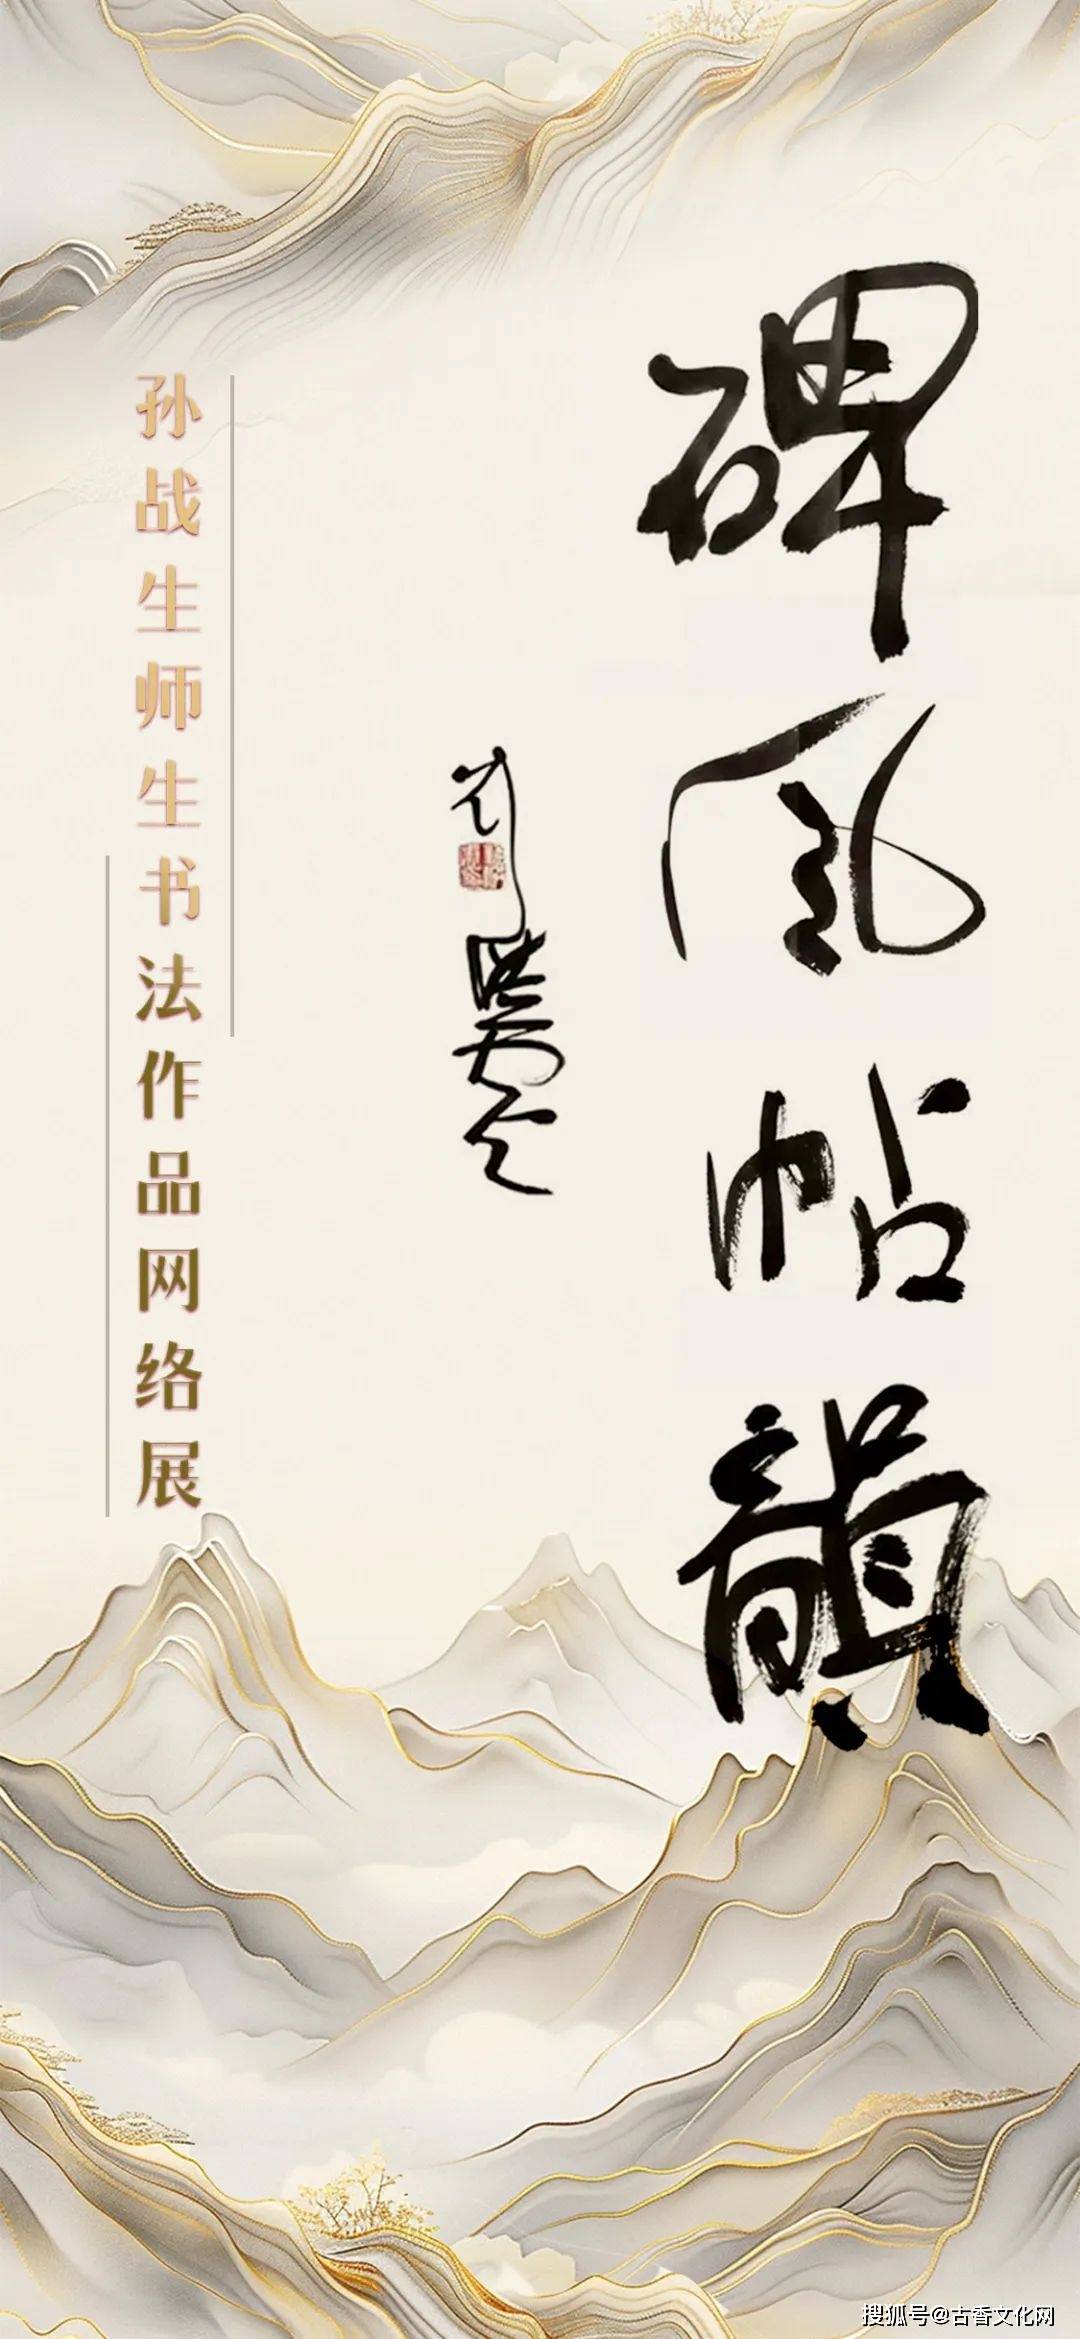 碑风帖韻
刘洪彪
孙战生师生书法作品网络展
搜狐号@古香文化网